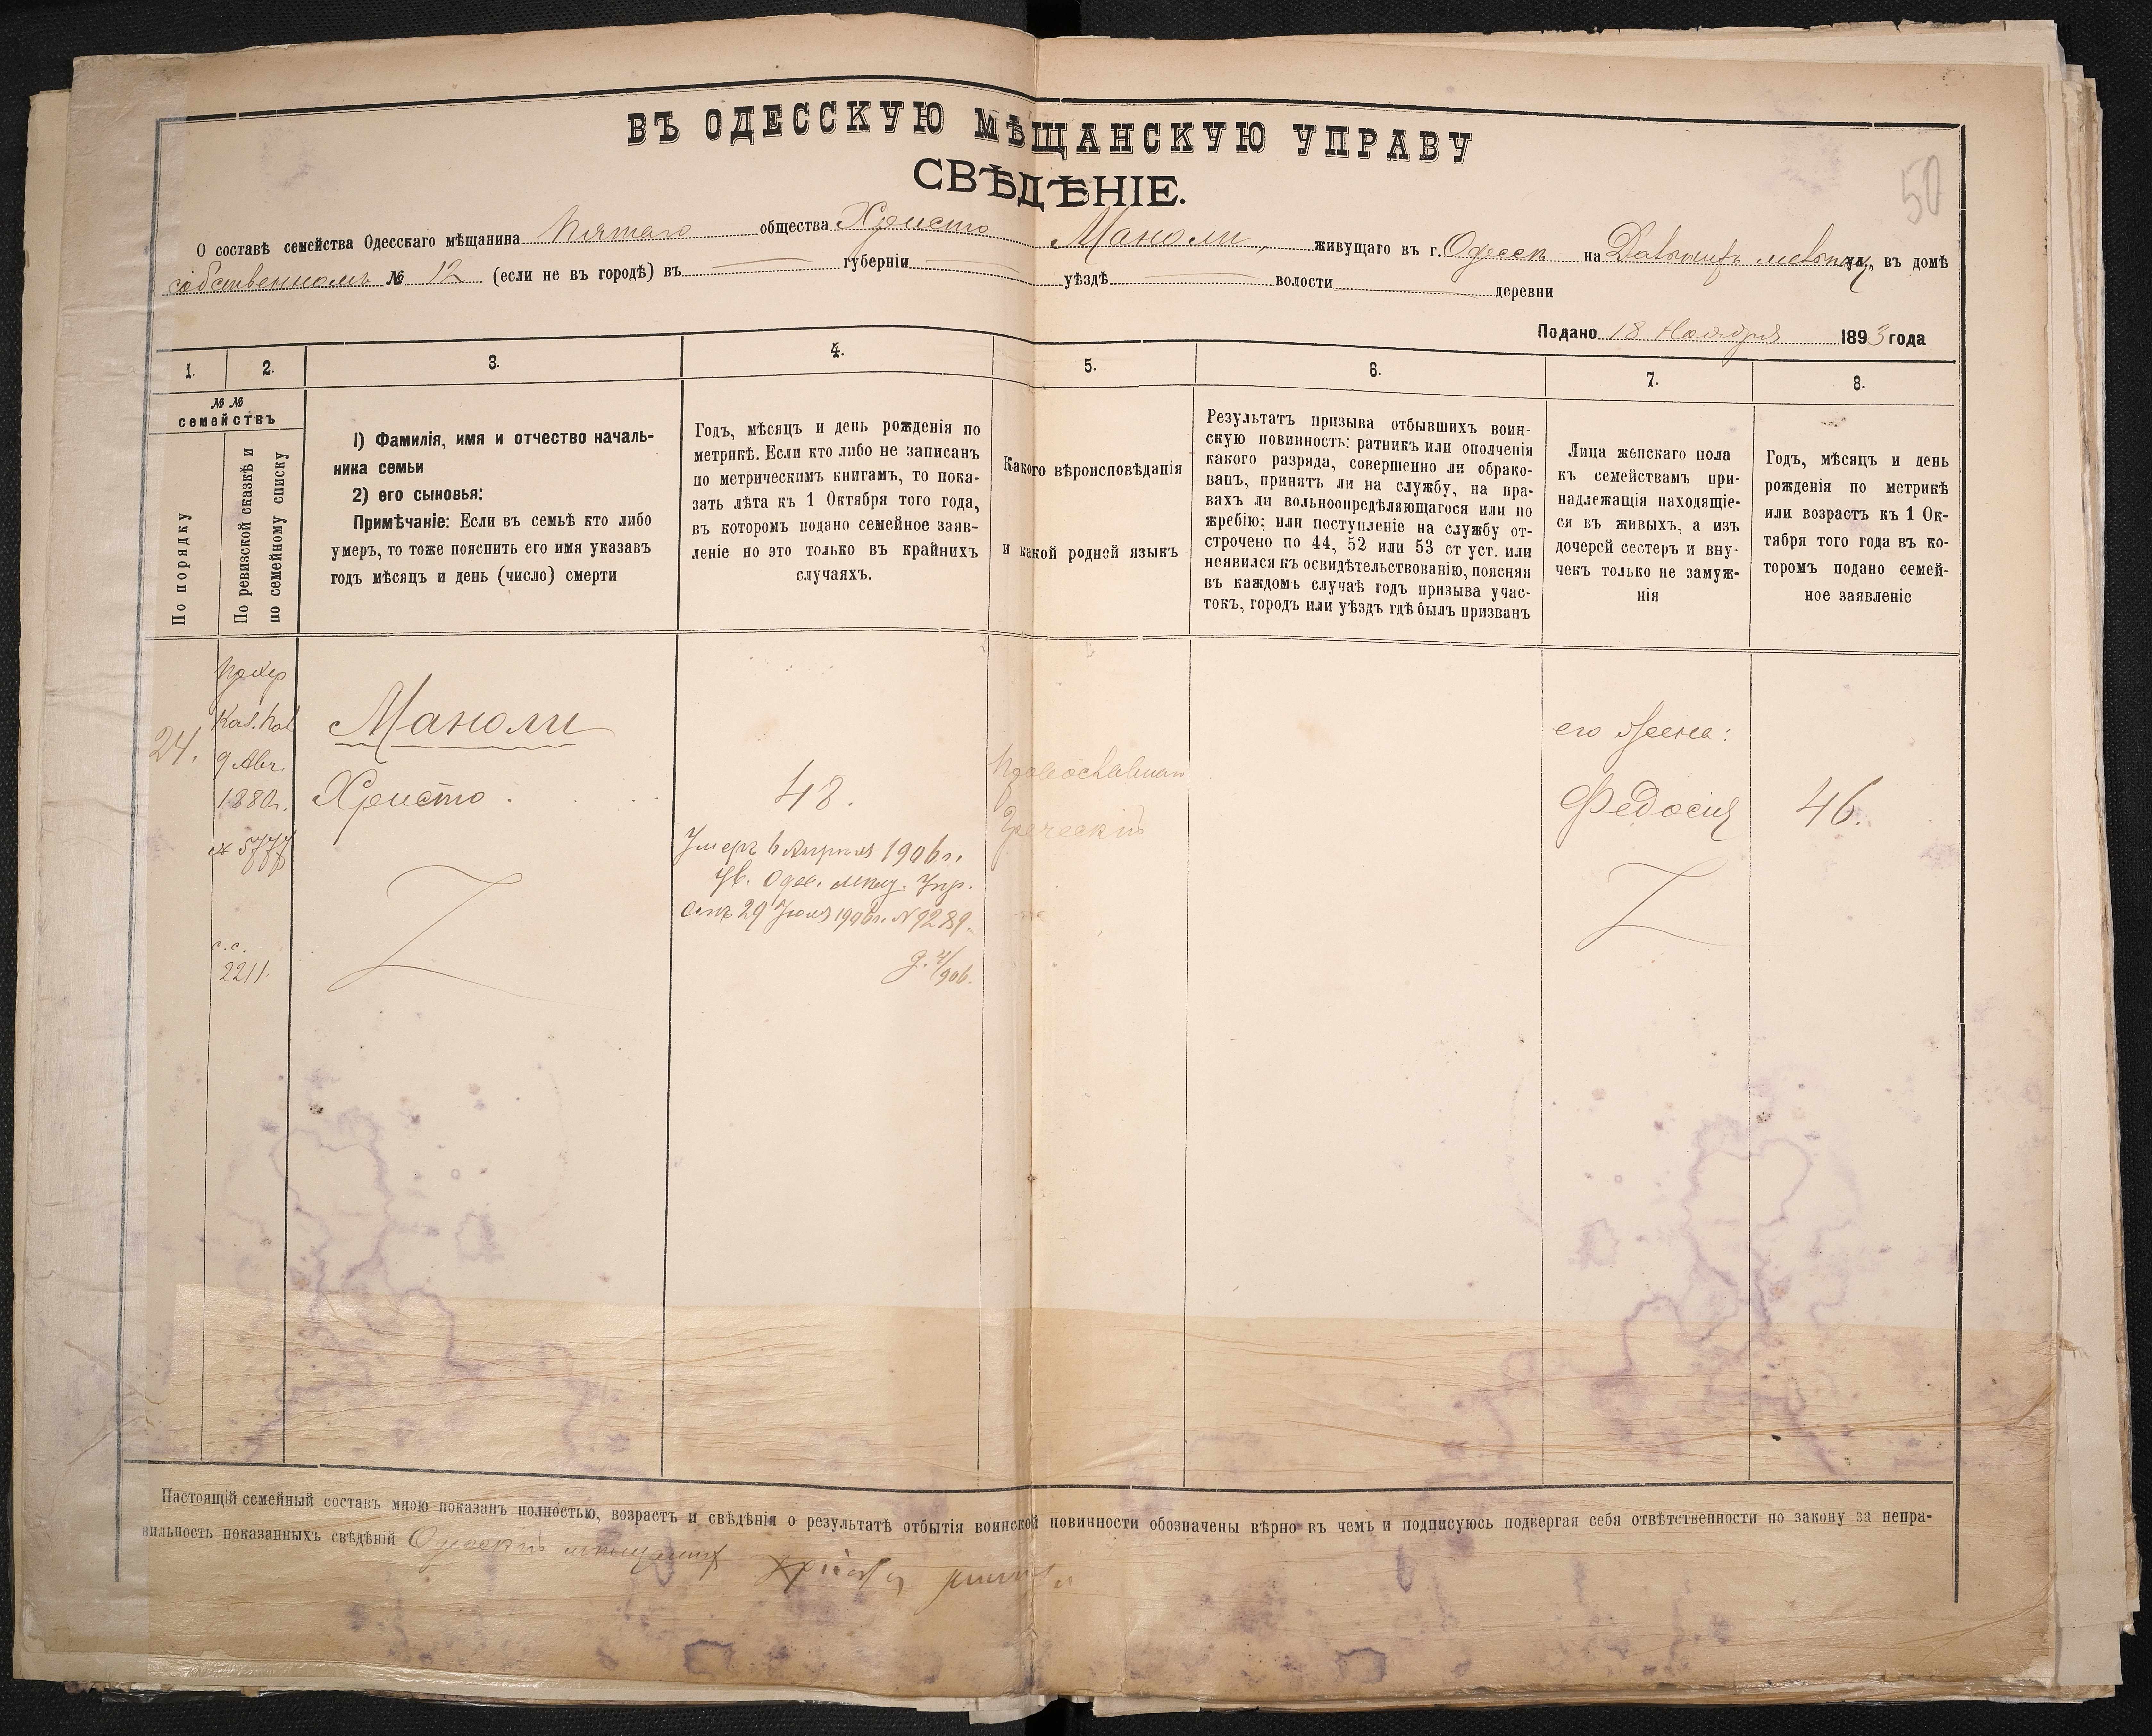 ВЪ ОДЕССКУЮ МѢЩАНСКУЮ УПРАВУ
СВѢДѢНІЕ.
50
О составѣ семейства Одесскаго мѣщанина Пятаго общества Христо Маноли, живущаго въ г. Одессѣ на ул., въ домѣ
собственномъ № 12 (если не въ городѣ) въ губерніи уѣздѣ волости деревни
Подано 18 Ноября 1893 года
1. 2. 3. 4. 5. 6. 7. 8.
№ №
семействъ
По порядку
По ревизской сказкѣ и
по семейному списку
1) Фамилія, имя и отчество началь-
ника семьи
2) его сыновья:
Примѣчаніе: Если въ семьѣ кто либо
умеръ, то тоже пояснить его имя указавъ
годъ мѣсяцъ и день (число) смерти
Годъ, мѣсяцъ и день рожденія по
метрикѣ. Если кто либо не записанъ
по метрическимъ книгамъ, то пока-
зать лѣта къ 1 Октября того года,
въ которомъ подано семейное заяв-
леніе но это только въ крайнихъ
случаяхъ.
Какого вѣроисповѣданія
и какой родной языкъ
Результатъ призыва отбывшихъ воин-
скую повинность: ратникъ или ополченія
какого разряда, совершенно ли обрако-
ванъ, принятъ ли на службу, на пра-
вахъ ли вольноопредѣляющагося или по
жребію; или поступленіе на службу от-
строчено по 44, 52 или 53 ст уст. или
неявился къ освидѣтельствованію, поясняя
въ каждомъ случаѣ годъ призыва учас-
токъ, городъ или уѣздъ гдѣ былъ призванъ
Лица женскаго пола
къ семействамъ при-
надлежащія находящіе-
ся въ живыхъ, а изъ
дочерей сестеръ и вну-
чекъ только не замуж-
нія
Годъ, мѣсяцъ и день
рожденія по метрикѣ
или возрастъ къ 1 Ок-
тября того года въ ко-
торомъ подано семей-
ное заявленіе
24.
Каз. Пал
9 Авг.
1880г.
№ 5777
с.с.
2211.
Маноли
Христо
48.
Умеръ 6 Апрѣля 1906 г.
Ув. Одес. мѣщ. Упр.
отъ 29 Іюля 1906 г. № 9289.
Православнаго
Греческій
его жена:
Федосія
46.
Настоящій семейный составъ мною показанъ полностью, возрастъ и свѣдѣнія о результатѣ отбытія воинской повинности обозначены вѣрно въ чемъ и подписуюсь подвергая себя отвѣтственности по закону за непра-
вильность показанныхъ свѣдѣній Одесскій мѣщанинъ